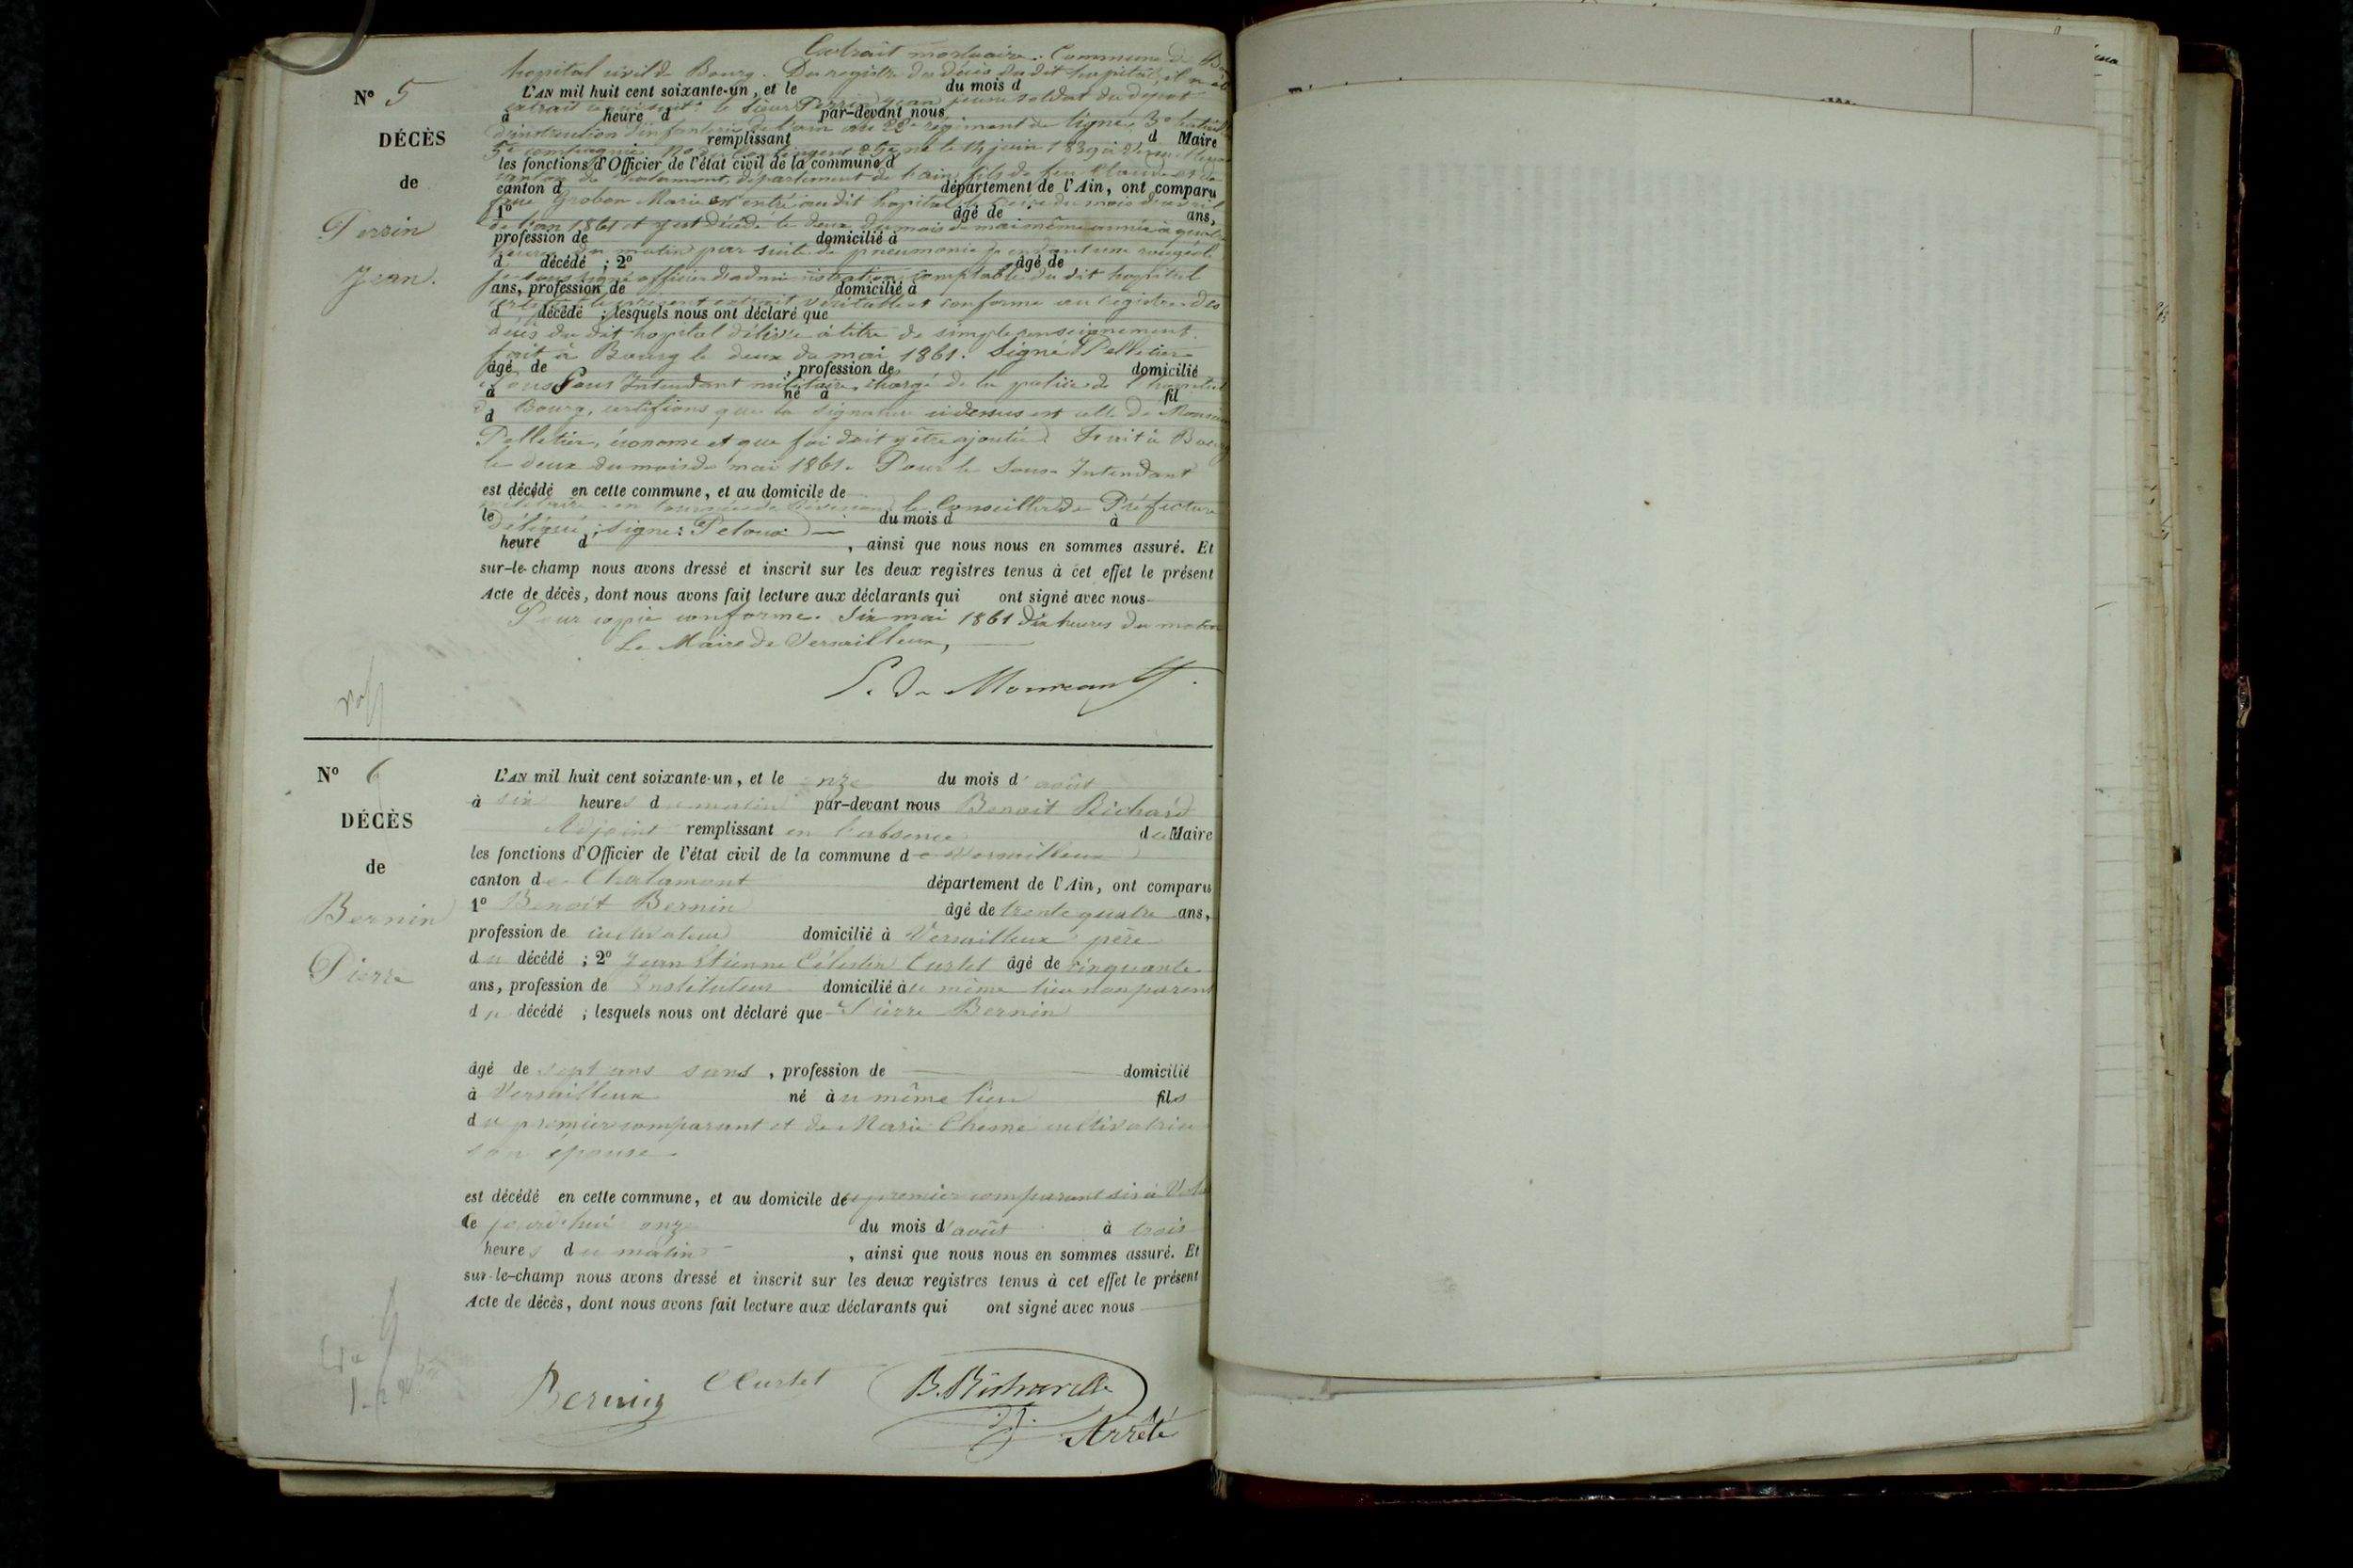 Extrait mortuaire. Commune de
hopital civil de Bourg. Du registre des décès du dit hopital, il a été
N° 5
L'AN mil huit cent soixante-un, et le du mois d
extrait ce qui suit: le sieur Perrin Jean jeune soldat du dépot
à heure d par-devant nous
d'instruction d'infanterie de l'ain au 22e régiment de ligne, 3e
DÉCÈS
remplissant d Maire
5e compagnie né le 14 juin 1839 à
les fonctions d'Officier de l'état civil de la commune d
canton de Chalamont, département de l'ain, fils de feu Claude et de
de
canton d département de l'Ain, ont comparu
Grobon Marie est entré au dit hopital le du mois d'avril
1° âgé de ans,
de l'an 1861 et y est décédé le deux du mois de mai même année à quatre
Perrin
profession de domicilié à
heures du matin par suite de pneumonie pendant une rougeole
d décédé ; 2° âgé de
Jean.
je soussigné officier d'administration comptable du dit hopital
ans, profession de domicilié à
certifie le présent extrait véritable et conforme au registre des
d décédé ; lesquels nous ont déclaré que
décès du dit hopital délivré à titre de simple renseignement.
fait à Bourg le deux de mai 1861. Signé Pelletier
âgé de , profession de domicilié
Nous Sous Intendant militaire, chargé de la police de l'hopital
à né à fil
de Bourg, certifions que la signature ci dessus est celle de Monsieur
d
Pelletier, économe et que foi doit y être ajoutée. Fait à Bourg
le deux du mois de mai 1861. Pour le Sous-Intendant
est décédé en cette commune, et au domicile de
militaire en tournée de révision, le Conseiller de Préfecture
le du mois d à
délégué; signé: Peloux
heure d , ainsi que nous nous en sommes assuré. Et
sur-le-champ nous avons dressé et inscrit sur les deux registres tenus à cet effet le présent
Acte de décès, dont nous avons fait lecture aux déclarants qui ont signé avec nous
Pour copie conforme. Six mai 1861 dix heures du matin
Le Maire de Versailleux,
N° 6
L'AN mil huit cent soixante-un, et le onze du mois d'août
à six heures du matin par-devant nous Benoit Richard
DÉCÈS
Adjoint remplissant en l'absence du Maire
les fonctions d'Officier de l'état civil de la commune de Versailleux
de
canton de Chalamont département de l'Ain, ont comparu
Bernin
1° Benoit Bernin âgé de trente quatre ans,
profession de cultivateur domicilié à Versailleux père
Pierre
du décédé ; 2° Jean Etienne Célestin Curtet âgé de cinquante
ans, profession de Instituteur domicilié au même lieu non parent
du décédé ; lesquels nous ont déclaré que Pierre Bernin
âgé de sept ans sans , profession de domicilié
à Versailleux né au même lieu fils
du premier comparant et de Marie Chesne cultivatrice
son épouse.
est décédé en cette commune, et au domicile du premier comparant sis à
le jourd'hui onze du mois d'août à trois
heures du matin , ainsi que nous nous en sommes assuré. Et
sur-le-champ nous avons dressé et inscrit sur les deux registres tenus à cet effet le présent
Acte de décès, dont nous avons fait lecture aux déclarants qui ont signé avec nous
Bernin CCurtet B. Richard
Arrêté